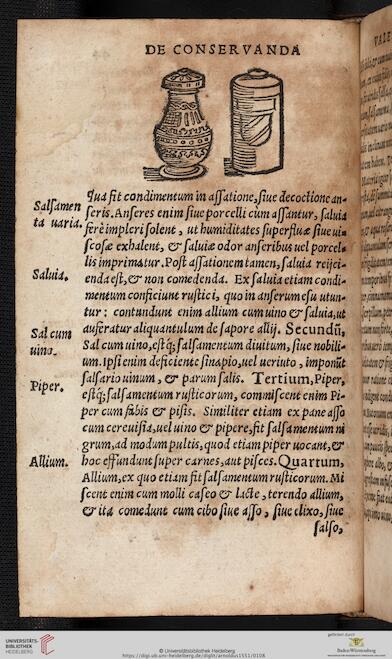 DE CONSERVANDA
Salsamen
ta uaria.
qua fit condimentum in assatione, siue decoctione an-
seris. Anseres enim siue porcelli cùm assantur, saluia
ferè impleri solent, ut humiditates superfluæ siue ui-
scosæ exhalent, & saluiæ odor anseribus uel porcel-
lis imprimatur. Post assationem tamen, saluia reijci-
Saluia.
enda est, & non comedenda. Ex saluia etiam condi-
mentum conficiunt rustici, quo in anserum esu utun-
tur: contundunt enim allium cum uino & saluia, ut
auferatur aliquantulum de sapore allij. Secundū,
Sal cum
uino.
Sal cum uino, estq́; salsamentum diuitum, siue nobili-
um. Ipsi enim deficiente sinapio, uel ueriuto, imponūt
salsario uinum, & parum salis. Tertium, Piper,
Piper.
estq́; salsamentum rusticorum, commiscent enim Pi-
per cum fabis & pisis. Similiter etiam ex pane asso
cum cereuisia, uel uino & pipere, fit salsamentum ni
grum, ad modum pultis, quod etiam piper uocant, &
Allium.
hoc effundunt super carnes, aut pisces. Quartum,
Allium, ex quo etiam fit salsamentum rusticorum. Mi
scent enim cum molli caseo & lacte, terendo allium,
& ita comedunt cum cibo siue asso, siue elixo, siue
salso,
UNIVERSITÄTS-
BIBLIOTHEK
HEIDELBERG
© Universitätsbibliothek Heidelberg
https://digi.ub.uni-heidelberg.de/diglit/arnoldus1551/0108
gefördert durch
Baden-Württemberg